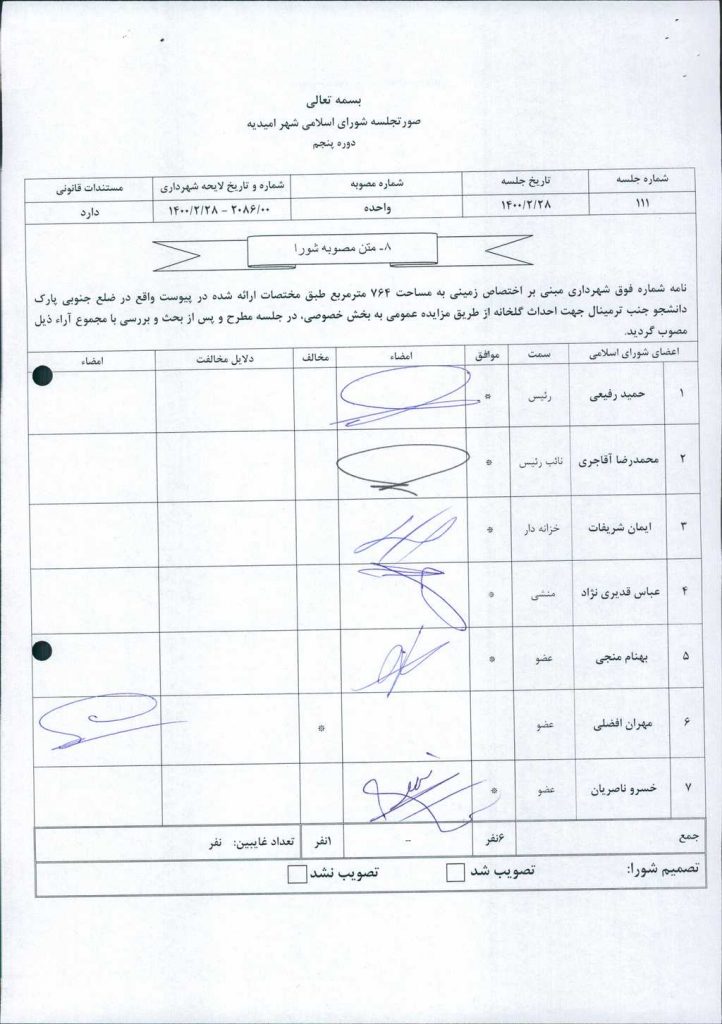 بسمه تعالی
صورتجلسه شورای اسلامی شهر امیدیه
دوره پنجم
شماره جلسه تاریخ جلسه شماره مصوبه شماره و تاریخ لایحه شهرداری مستندات قانونی
۱۱۱ ۱۴۰۰/۲/۲۸ واحده ۲۰۸۶/۰۰ - ۱۴۰۰/۲/۲۸ دارد
۸- متن مصوبه شورا
نامه شماره فوق شهرداری مبنی بر اختصاص زمینی به مساحت ۷۶۴ مترمربع طبق مختصات ارائه شده در پیوست واقع در ضلع جنوبی پارک
دانشجو جنب ترمینال جهت احداث گلخانه از طریق مزایده عمومی به بخش خصوصی، در جلسه مطرح و پس از بحث و بررسی با مجموع آراء ذیل
مصوب گردید.
اعضای شورای اسلامی سمت موافق امضاء مخالف دلایل مخالفت امضاء
۱ حمید رفیعی رئیس *
۲ محمدرضا آقاجری نائب رئیس *
۳ ایمان شریفات خزانه دار *
۴ عباس قدیری نژاد منشی *
۵ بهنام منجی عضو *
۶ مهران افضلی عضو *
۷ خسرو ناصریان عضو *
جمع ۶نفر -- ۱نفر تعداد غایبین: نفر
تصمیم شورا: تصویب شد تصویب نشد